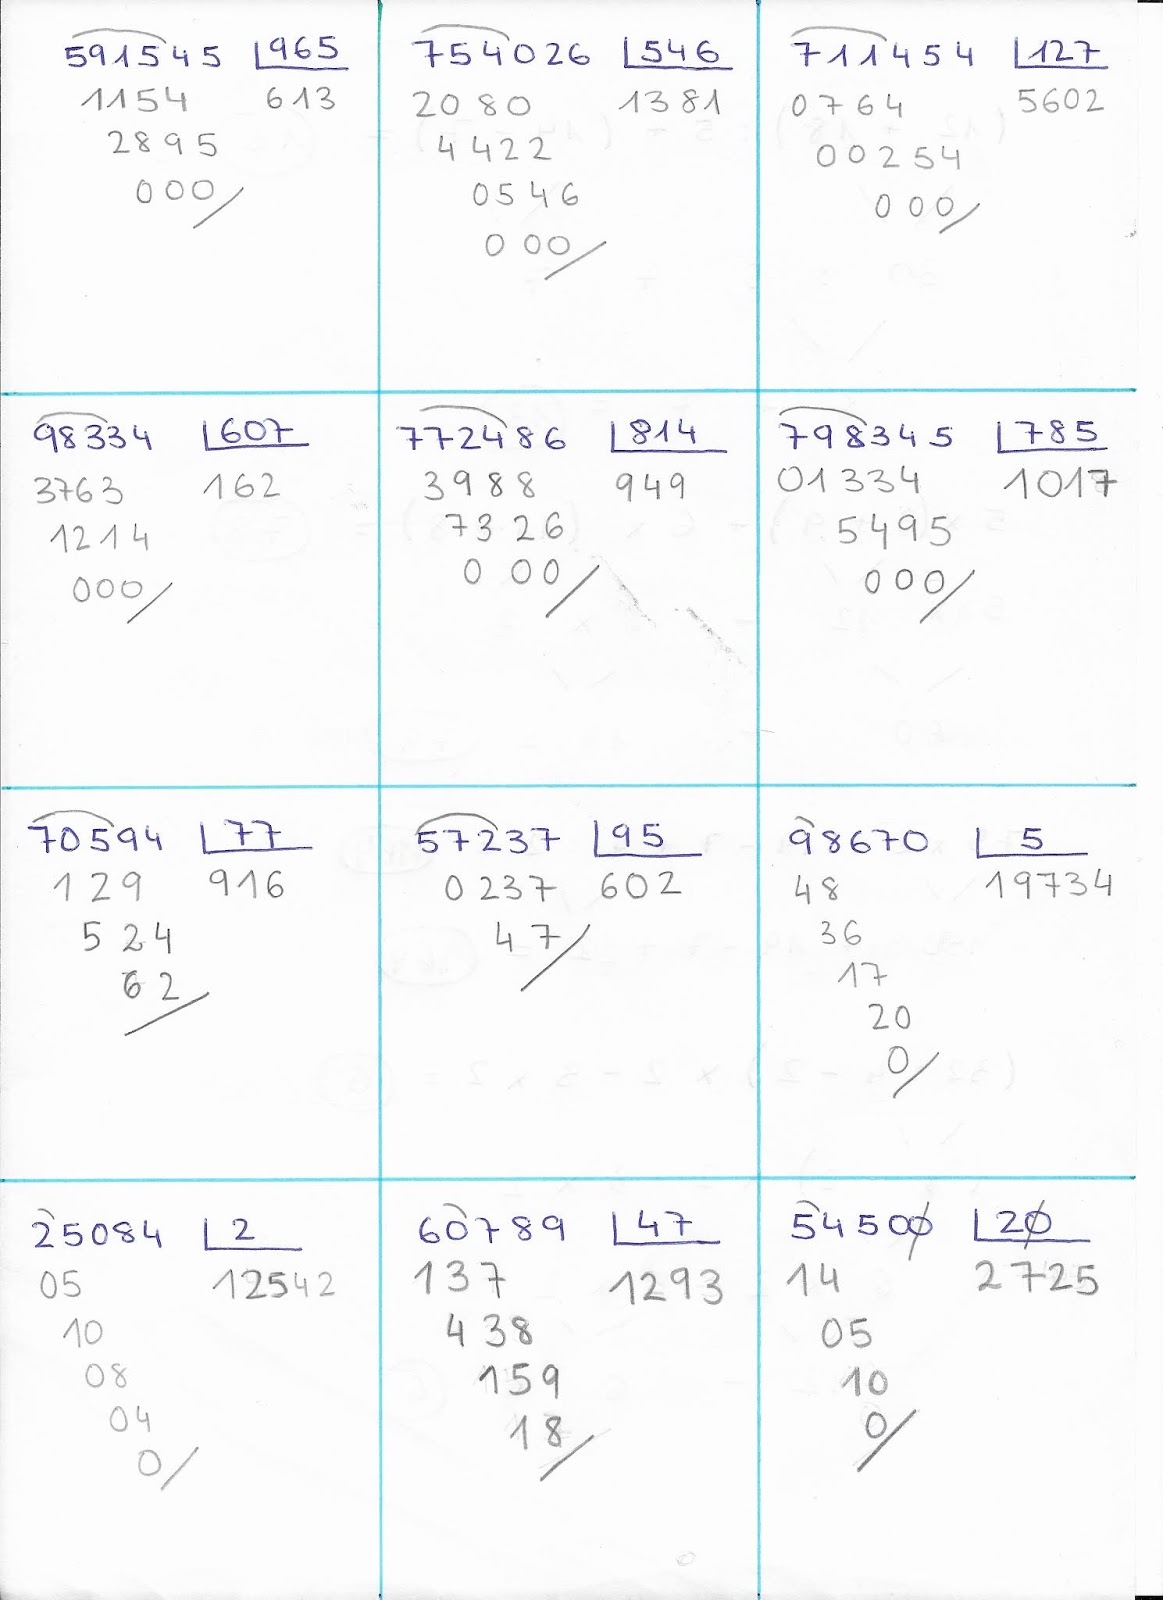 591545 965
1154 613
2895
000
754026 546
2080 1381
4422
0546
000
711454 127
0764 5602
00254
000
98334 607
3763 162
1214
000
772486 814
3988 949
7326
000
798345 785
01334 1017
5495
000
70594 77
129 916
524
62
57237 95
0237 602
47
98670 5
48 19734
36
17
20
0
25084 2
05 12542
10
08
04
0
60789 47
137 1293
438
159
18
54500 20
14 2725
05
10
0